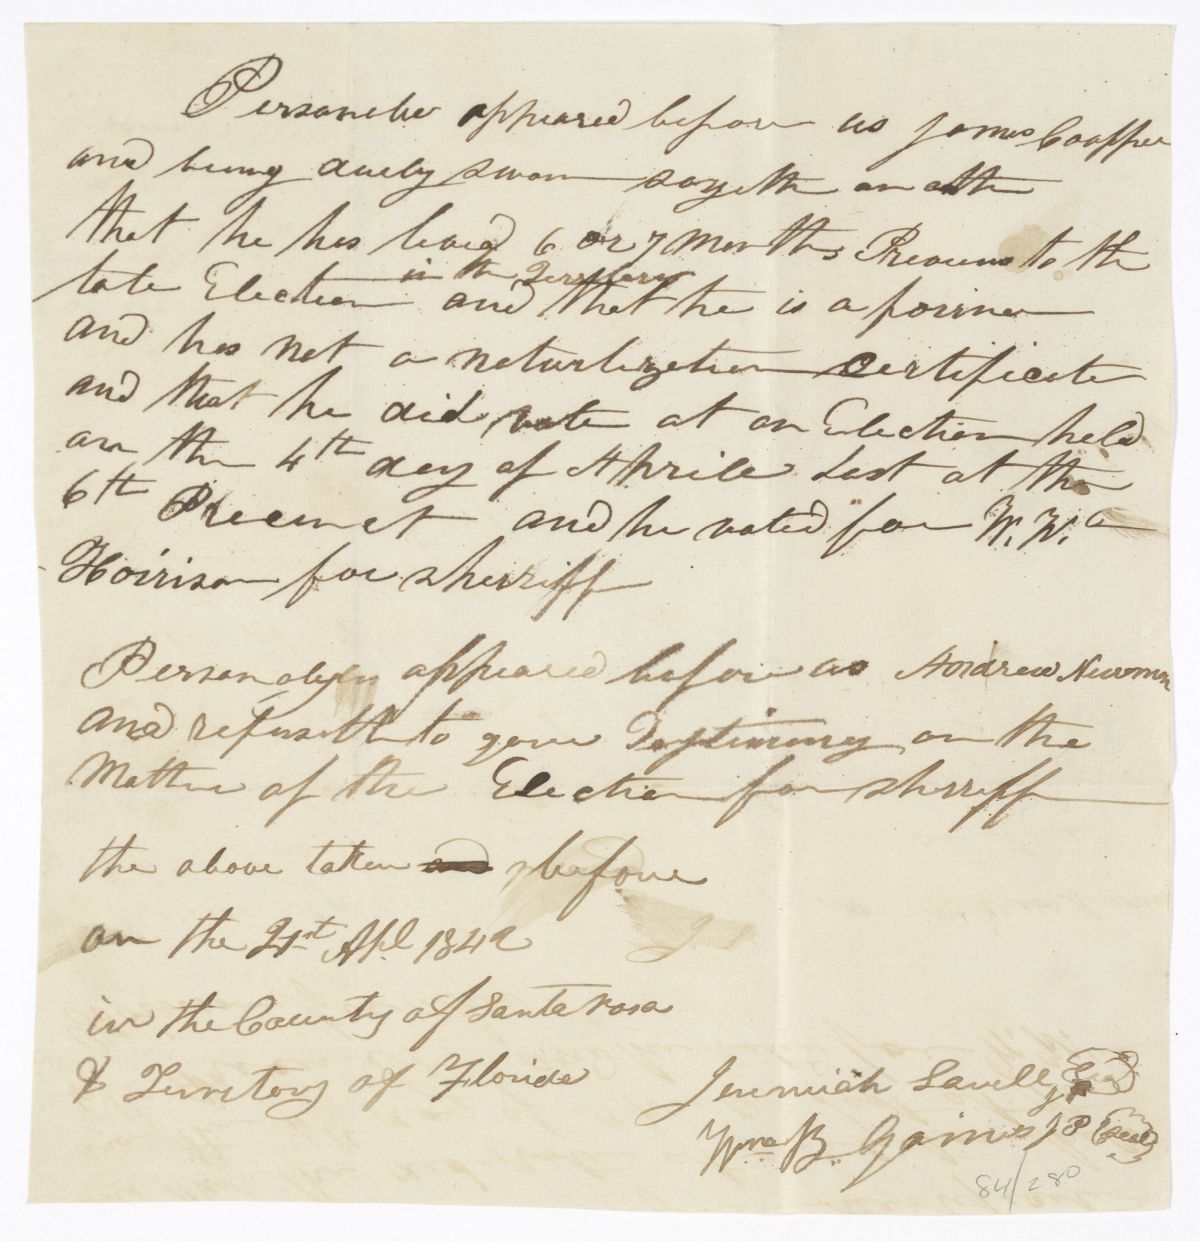 Personelie appeared before us James Coopper
and being duely sworn sayeth on oth
that he has lived 6 or 7 Months Previous to the
in the Territory
late Election and that he is a foirner
and has not a naturlization certificate
and that he did vote at an Election held
on the 4th day of Aprile Last at the
6th Precinct and he voted for W. W.
Hoirison for sherriff
appeared before us Andrew Newman
and refuseth to give Testimony on the
Matter of the Election for sherriff
the above taken before
on the 21st Apl 1842
in the County of Santa rosa
& Territory of Florida
Jeremiah Savell
Wm B. Gaines J P Seal
84/280